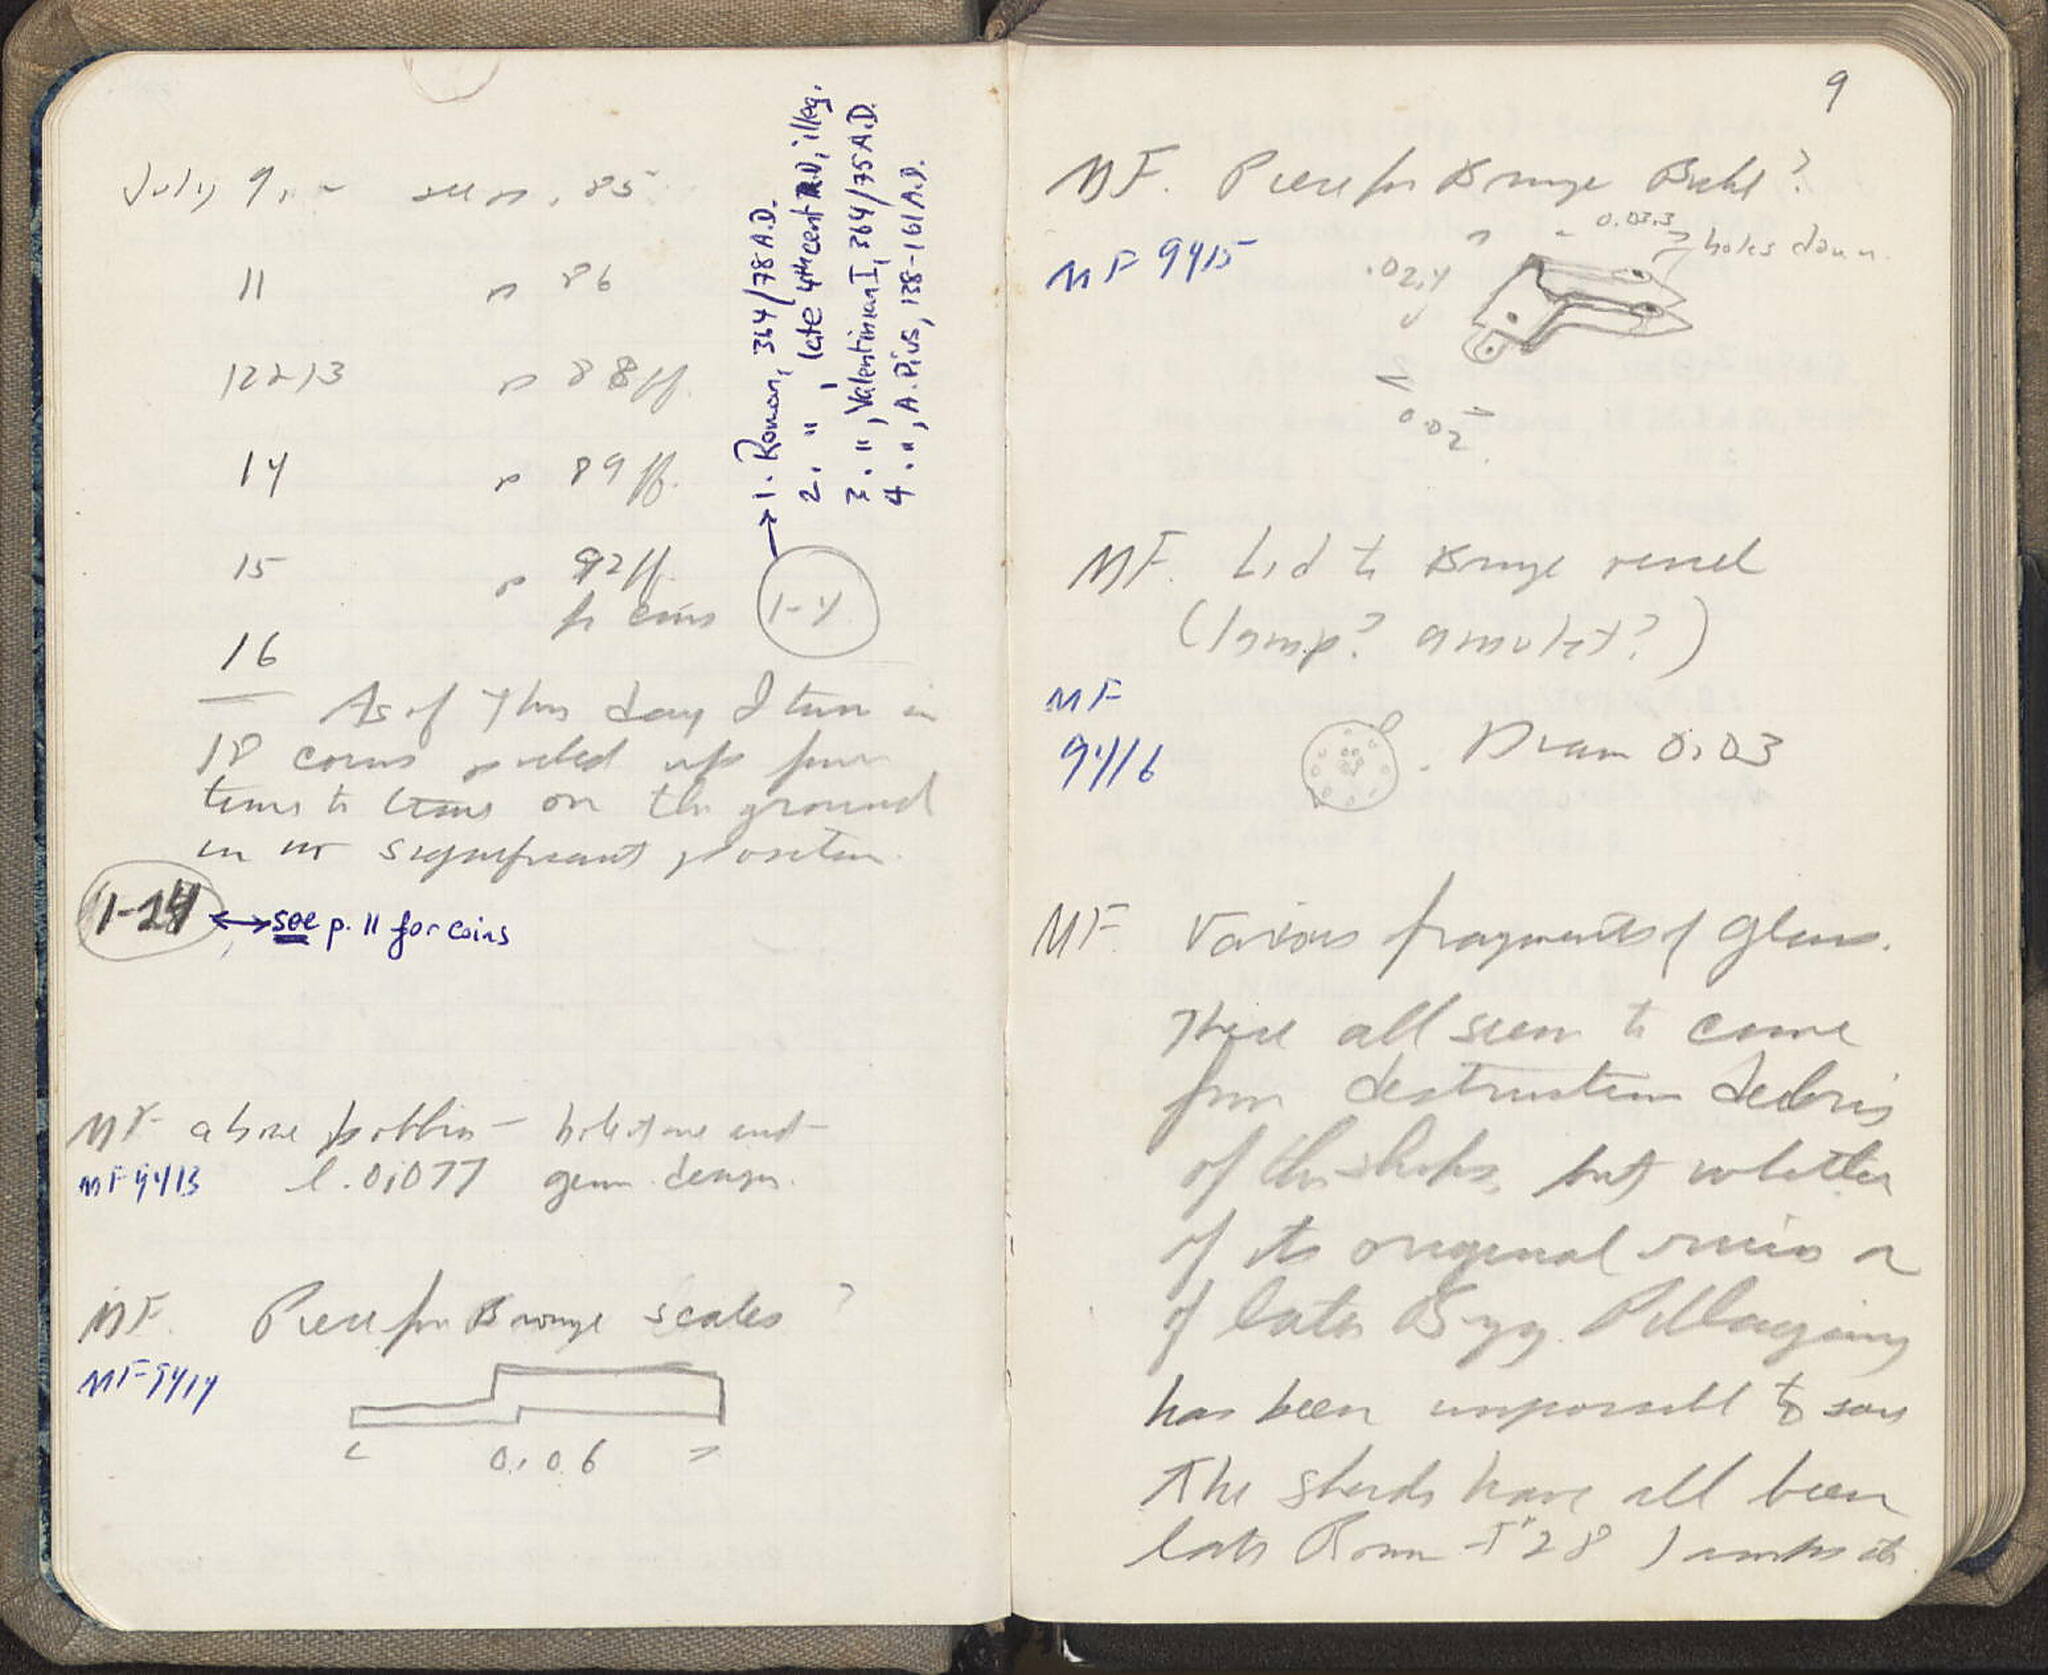 July 9, - see p. 85
11 p 86
12 & 13 p 88 ff.
14 p 89 ff.
15 p 92 ff.
for coins 1-4
→ 1. Roman, 364/78 A.D.
2. " , late 4th cent A.D., illeg.
3. " , Valentinian I, 364/75 A.D.
4. " , A. Pius, 138-161 A.D.
16
As of this day I turn in
18 coins picked up from
time to time on the ground
in no significant position.
1-24 ↔ see p. 11 for coins
MF above bobbin - hole at one end -
MF 9413 l. 0.077 geom. design.
MF. Piece for Bronze scales ?
MF 9414
0.06
9
MF. Piece for Bronze Buckle?
MF 9415
0.033
holes down
.024
0.02
MF. Lid to Bronze vessel
(lamp? amulet?)
MF
9416
Diam 0.03
MF. Various fragments of glass.
These all seem to come
from destruction debris
of the shops, but whether
of its original ruin or
of later Byz. Pillaging
has been impossible to say
The sherds have all been
late Roman - T" 28